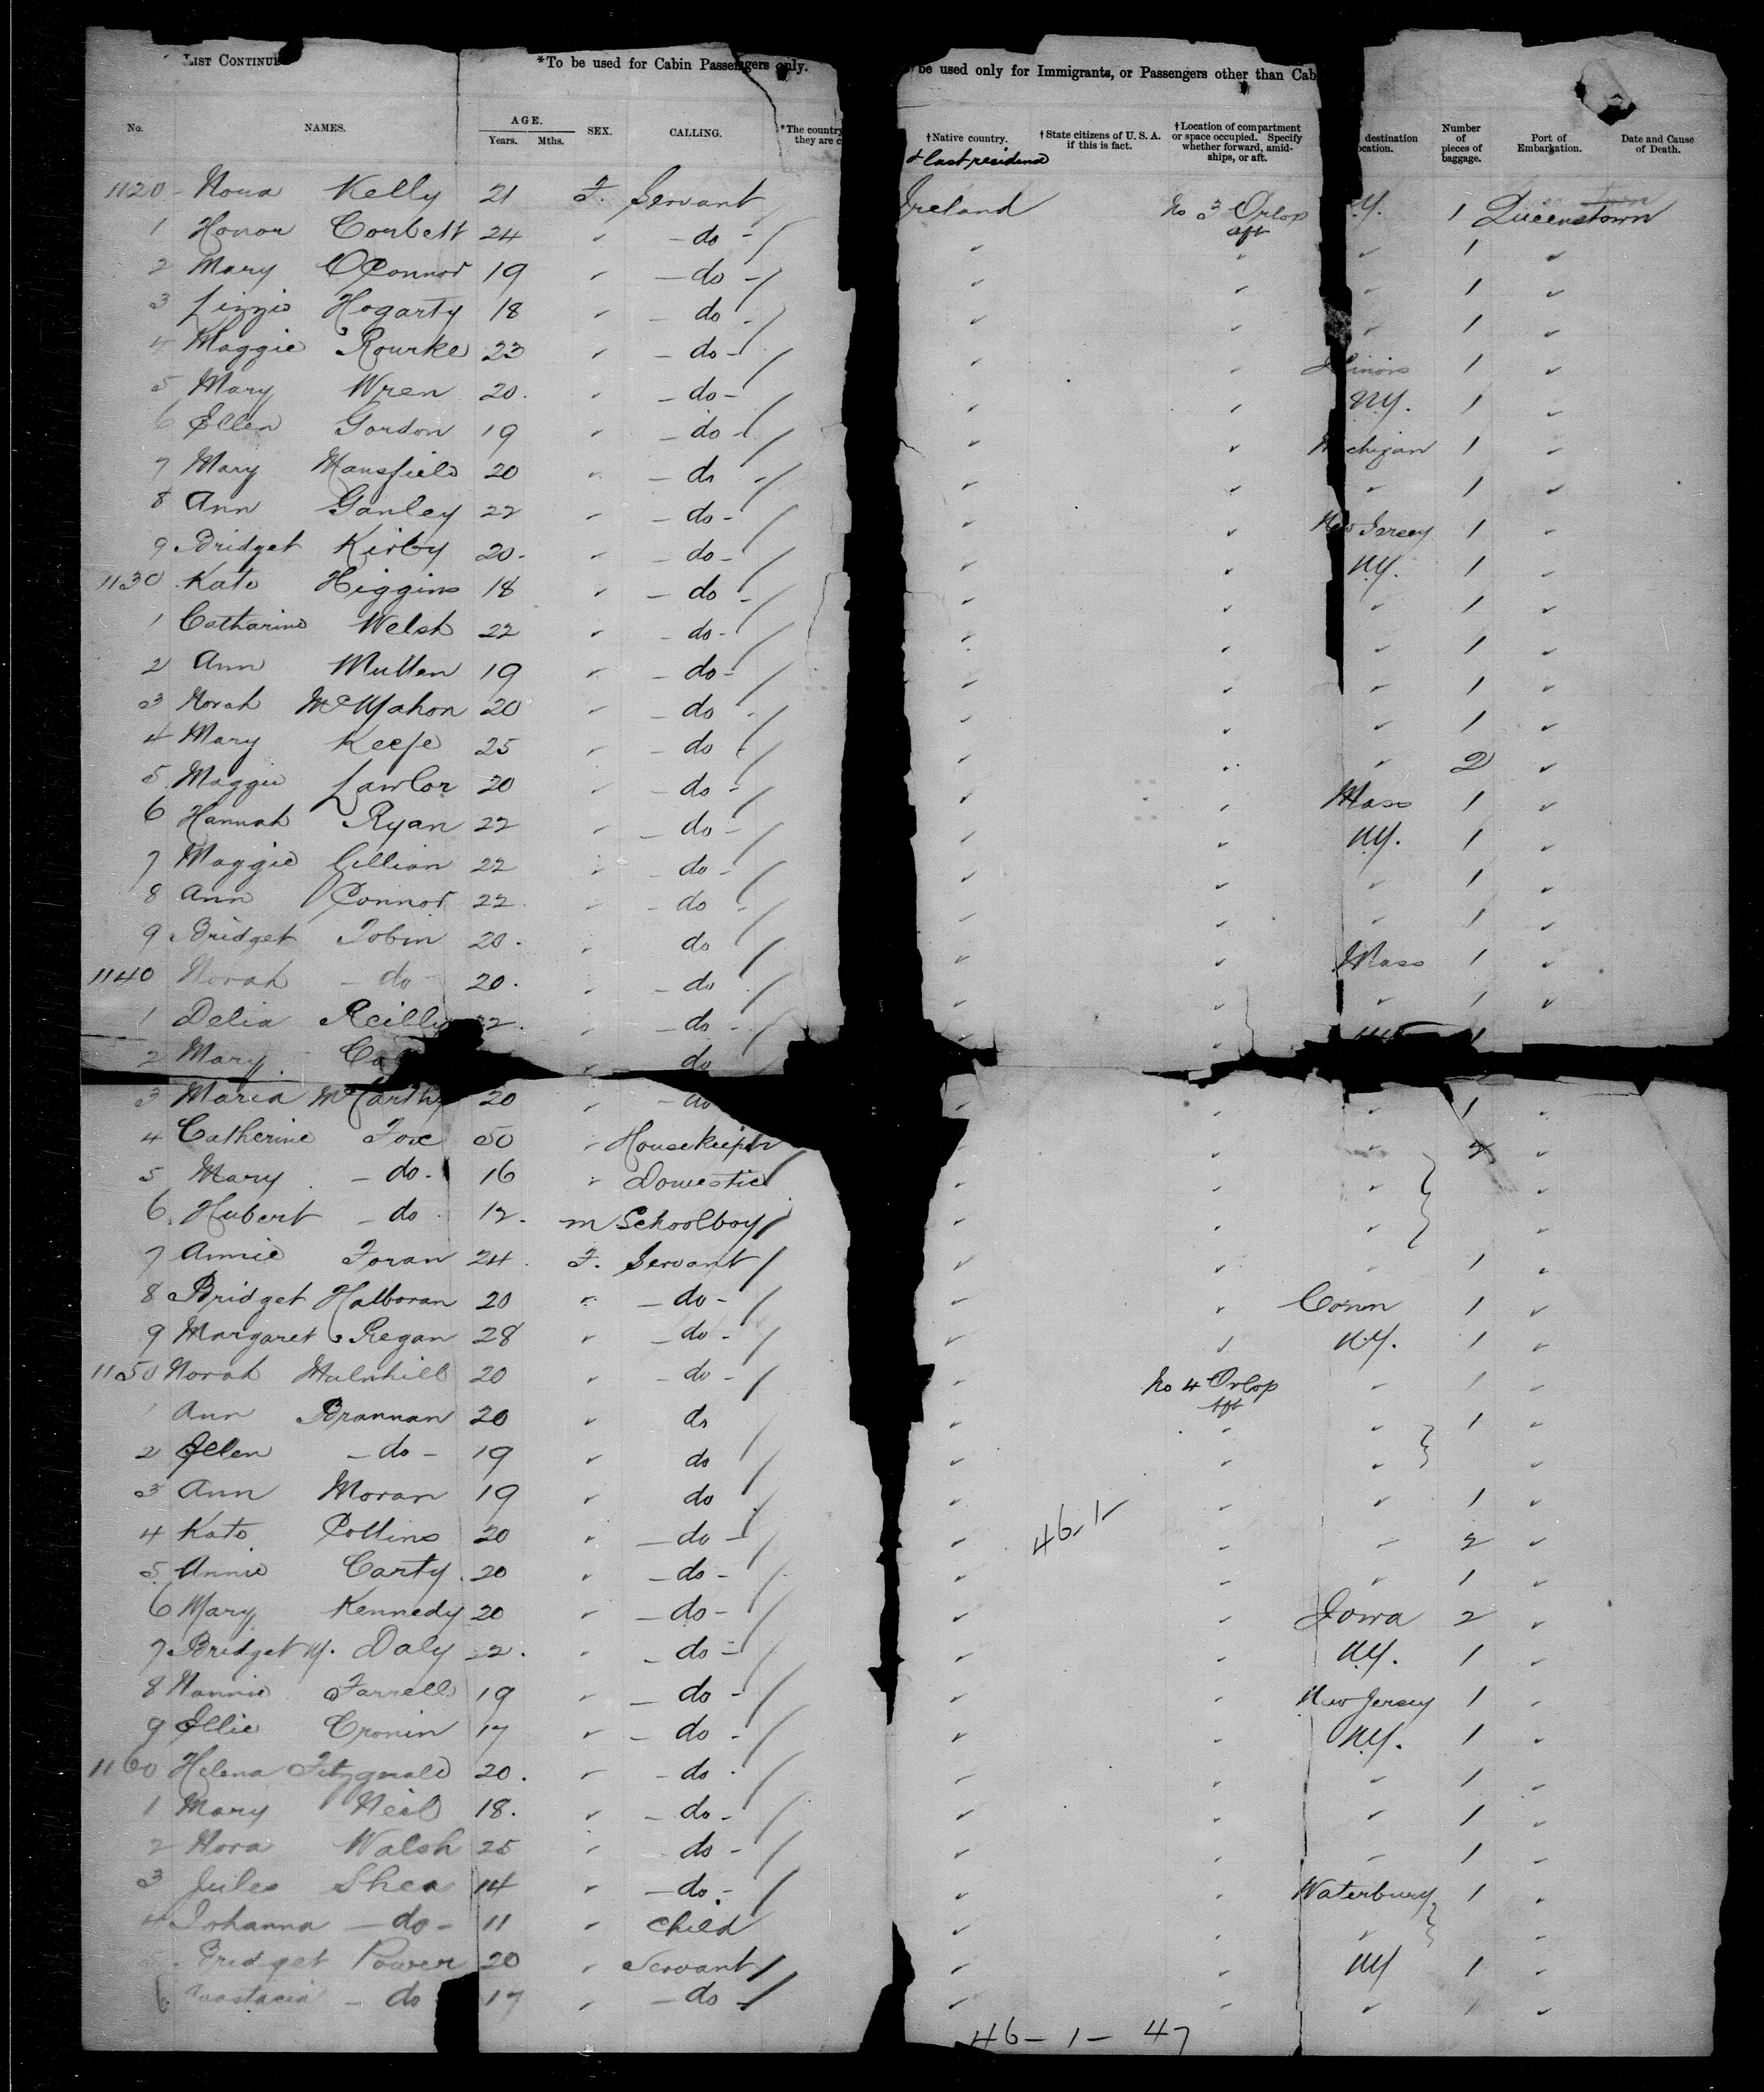 LIST CONTINU
*To be used for Cabin Passengers only.
be used only for Immigrants, or Passengers other than Cab
No. NAMES. AGE. Years. Mths. SEX. CALLING. *The country they are c †Native country. †State citizens of U. S. A. if this is fact. †Location of compartment or space occupied. Specify whether forward, amid-ships, or aft. destination ocation. Number of pieces of baggage. Port of Embarkation. Date and Cause of Death.
& last residence
1120 Nora Kelly 21 F. Servant Ireland No 3 Orlop aft .Y. 1 Queenstown
1 Honor Corbett 24 " - do - " " " 1 "
2 Mary O'Connor 19 " - do - " " " 1 "
3 Lizzie Hogarty 18 " - do - " " " 1 "
4 Maggie Rourke 23 " - do - " " Illinois 1 "
5 Mary Wren 20 " - do - " " N.Y. 1 "
6 Ellen Gordon 19 " - do - " " Michigan 1 "
7 Mary Mansfield 20 " - do - " " " 1 "
8 Ann Ganley 22 " - do - " " New Jersey 1 "
9 Bridget Kirby 20 " - do - " " N.Y. 1 "
1130 Kate Higgins 18 " - do - " " " 1 "
1 Catharine Welsh 22 " - do - " " " 1 "
2 Ann Mullen 19 " - do - " " " 1 "
3 Norah McMahon 20 " - do - " " " 1 "
4 Mary Keefe 25 " - do " " " 2 "
5 Maggie Lawlor 20 " - do - " " Mass 1 "
6 Hannah Ryan 22 " - do - " " N.Y. 1 "
7 Maggie Cillian 22 " - do - " " " 1 "
8 Ann O'Connor 22 " - do - " " " 1 "
9 Bridget Tobin 20 " do " " Mass 1 "
1140 Norah - do - 20 " - do " " " 1 "
1 Delia Reilly 22 " - do - " " 1
2 Mary " do
3 Maria McCarthy 20 " - do " " " 1 "
4 Catherine Fox 50 " Housekeeper " " "
5 Mary - do - 16 " Domestic " " " "
6 Hubert - do 12 m Schoolboy " " " "
7 Annie Foran 24 F. Servant " " " 1 "
8 Bridget Halloran 20 " - do - " " Conn 1 "
9 Margaret Regan 28 " - do - " " N.Y. 1 "
1150 Norah Mulnhill 20 " - do - " No 4 Orlop aft " 1 "
1 Ann Brannan 20 " do " " " 1 "
2 Ellen - do - 19 " do " " " "
3 Ann Moran 19 " do " " " 1 "
4 Kate Collins 20 " - do - " 46-1- " " 2 "
5 Annie Carty 20 " - do - " " " 1 "
6 Mary Kennedy 20 " - do - " " Iowa 2 "
7 Bridget M. Daly 22 " - do - " " N.Y. 1 "
8 Nannie Farrell 19 " - do - " " New Jersey 1 "
9 Ellie Cronin 17 " - do - " " N.Y. 1 "
1160 Helena Fitzgerald 20 " - do - " " " 1 "
1 Mary Neil 18 " - do - " " " 1 "
2 Nora Walsh 25 " do - " " " 1 "
3 Shea 14 " - do - " " Waterbury 1 "
4 Johanna - do - 11 " Child " " " "
5 Bridget Power 20 " Servant " " NY 1 "
6 Anastacia - do 17 " - do - " " " "
46 - 1 - 47